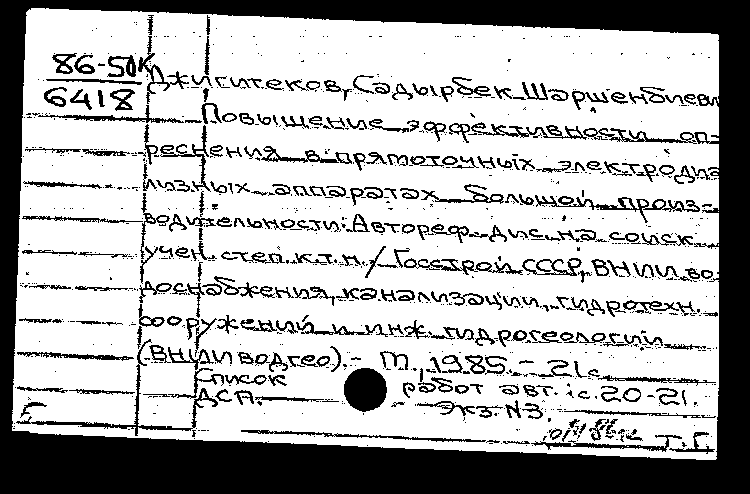 86-5ДК
6418
Джигитеков, Садырбек Шаршенбиеви
Повышение эффективности оп-
реснения в прямоточных электродиа
лизных аппаратах большой произ-
водительности: Автореф. дис. на соиск.
учен. степ. к.т.н. / Госстрой СССР, ВНИИ во-
доснабжения, канализации, гидротехн.
сооружений и инж. гидрогеологии
(ВНИИ водгео). - М., 1985. - 21 с.
Список работ авт.: с. 20-21.
ДСП. - Экз. N3.
Б
Т. Г.